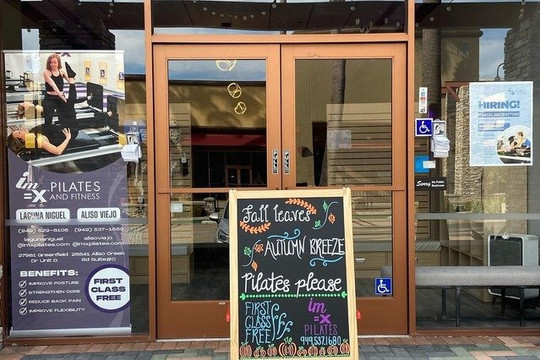 im
=X PILATES
AND FITNESS
LAGUNA NIGUEL ALISO VIEJO
(949) 529-8106 (949) 537-1680
lagunaniguel alisoviejo
@imxpilates.com @imxpilates.com
27981 Greenfield 25641 Aliso Creek
Dr Unit D
BENEFITS:
IMPROVE POSTURE
STRENGTHEN CORE
REDUCE BACK PAIN
IMPROVE FLEXIBILITY
FIRST
CLASS
FREE
Fall leaves
AUTUMN BREEZE
Pilates please
FIRST
CLASS
FREE
im
=X
PILATES
949.537.1680
HIRING!
Sorry